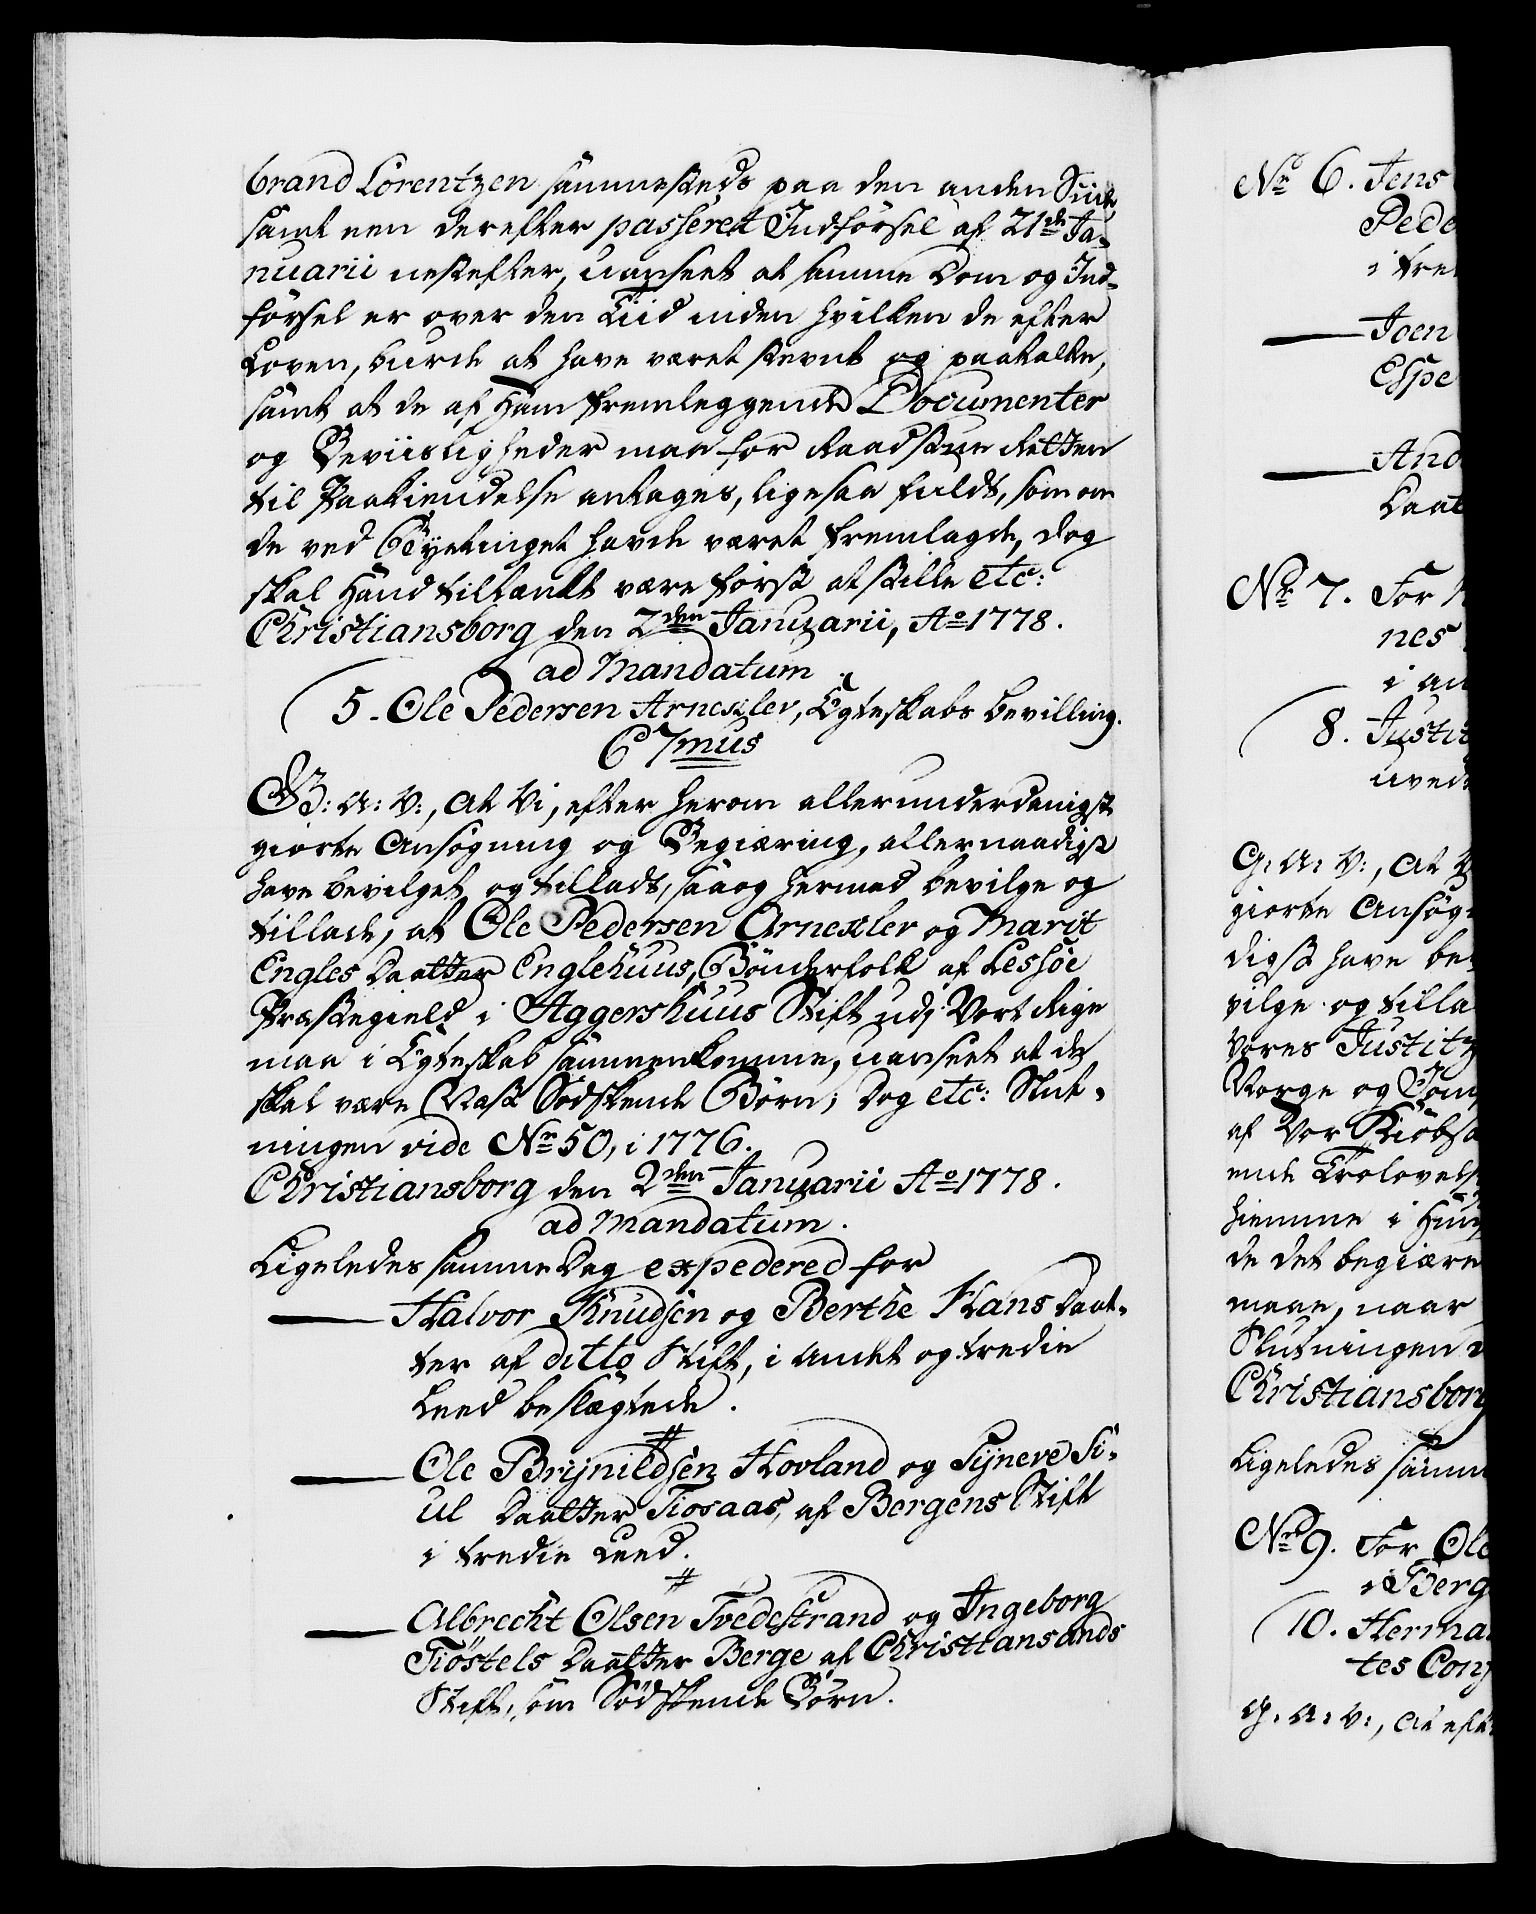 brand Lorentzen sammesteds paa den anden Siide
samt een derefter passeret Indførsel af 21de Ja-
nuarii nestefter, uanseet at samme Dom og Ind-
førsel er over den Tiid inden hvilken de efter
Loven, burde at have været stevnt og paatalte,
samt at de af Ham fremleggende Documenter
og Beviisligheder maa for Raadstue Retten
til Paakiendelse antages, ligesaa fuldt, som om
de ved Bÿetinget havde været fremlagde, dog
skal Hand tiltænkt være først at stille etc:
Christiansborg den 2den Januarii, Ao 1778.
ad Mandatum
5. Ole Pedersen Arnexler, Egteskabs Bevilling.
C 7mus
G: A: V:, At Vi, efter herom allerunderdanigst
giorte Ansøgning og Begiæring, allernaadigst
have bevilget og tilladt, saa og hermed bevilge og
tillade, at Ole Pedersen Arnexler og Marit
Engles Daatter Englehuus, Bønderfolk af Lessøe
Præstegield i Aggershuus Stift udj Vort Rige
maa i Egteskab sammenkomme, uanseet at de
skal være Næst Sødskende Børn; Dog etc: Slut-
ningen vide No 50, i 1776.
Christiansborg den 2den Januarii Ao 1778.
ad Mandatum.
Ligeledes samme Dag expedered for
— Halvor Knudsen og Berthe Hans Daat-
ter af ditto Stift, i andet og tredie
Leed beslægtede.
— Ole Brijnildsen Hovland og Sijneve Si-
ul Daatter Tiosaas, af Bergens Stift
i tredie Leed.
— Albrecht Olsen Tvedestrand og Ingeborg
Tiøstels Daatter Berge af Christiansands
Stift, som Sødskende Børn.
No 6. Jens
Pede
i tre
— Joen
Espe
— And
Daat
No 7. For
nes
i an
8. Justit
uved
G: A: V:, At V
giorte Ansøg
digst have be
vilge og tilla
Vores Justitz
Norge og Com
af Vor Kiøbsta
ende Trolovels
hiemme i Huus
de det begiære
maae, naar
Slutningen
Christiansborg
Ligeledes samm
No 9. For Ole
i Berg
10. Herma
tes Con
G: A: V:, At efte